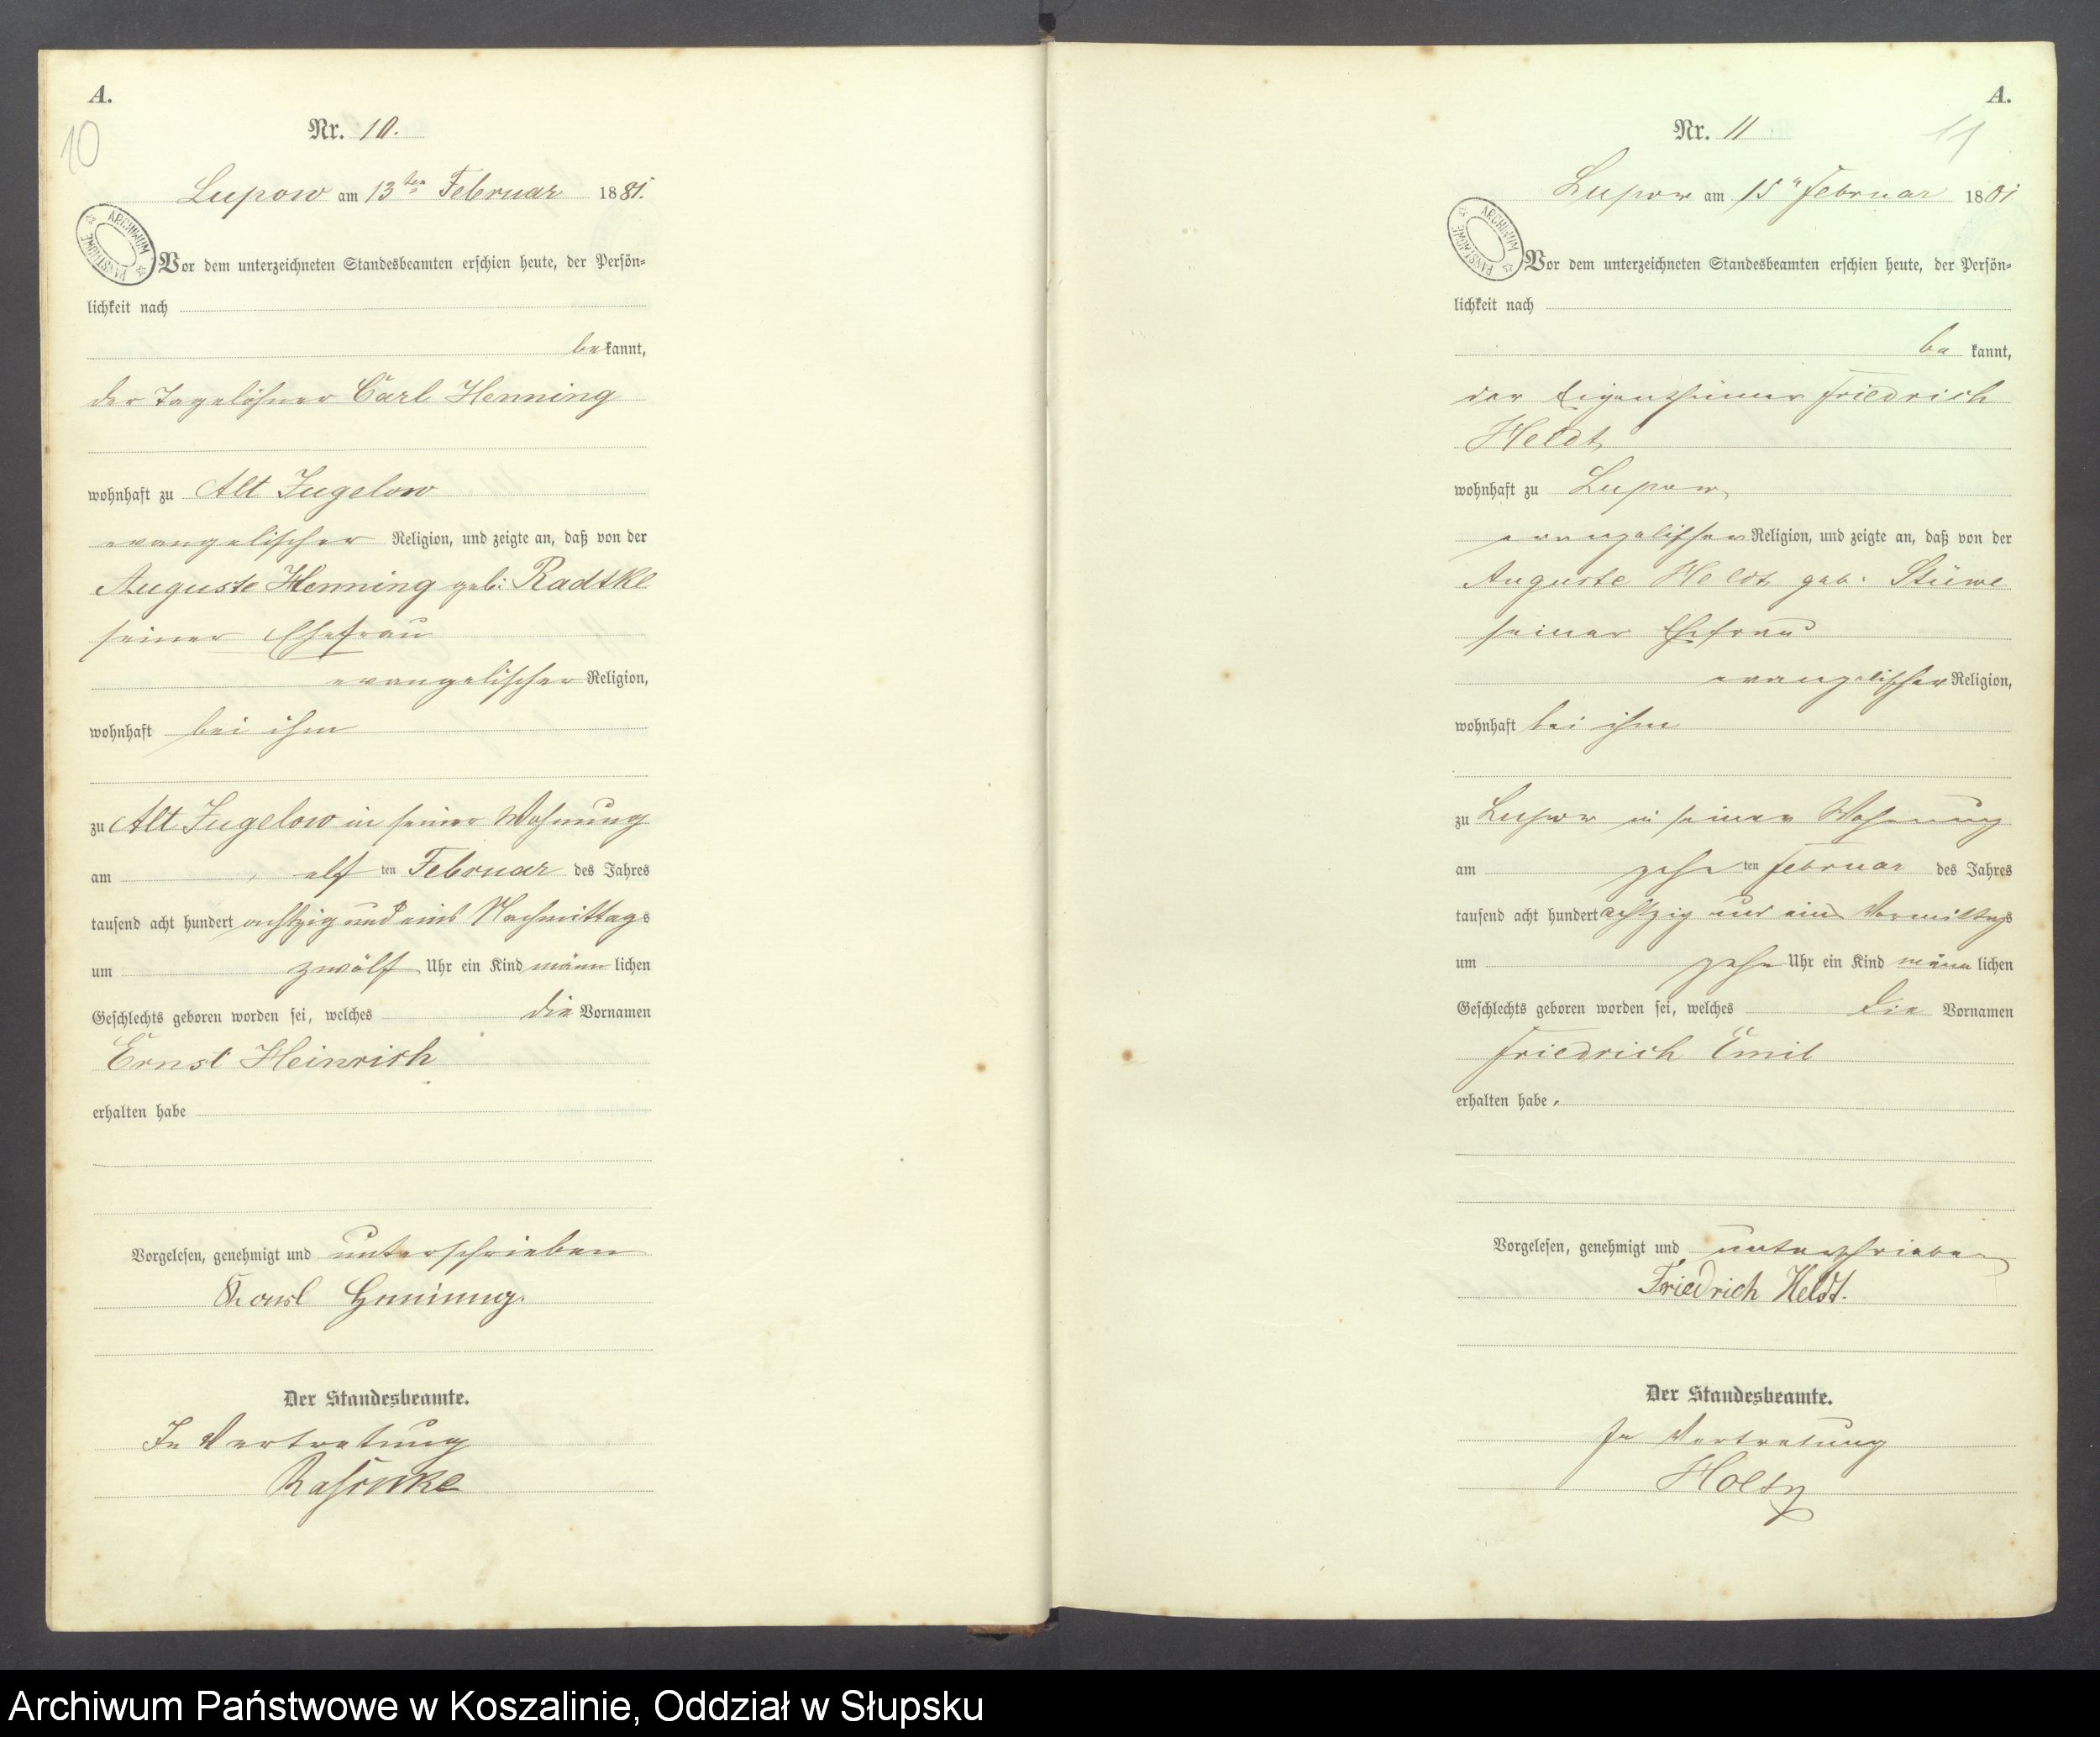 A.
10
Nr. 10.
Lupow am 13ten Februar 1881.
ARCHIWUM PAŃSTWOWE
Vor dem unterzeichneten Standesbeamten erschien heute, der Persön-
lichkeit nach
bekannt,
der Tagelöhner Carl Henning
wohnhaft zu Alt Jugelow
evangelischer Religion, und zeigte an, daß von der
Auguste Henning geb: Radtke
seiner Ehefrau
evangelischer Religion,
wohnhaft bei ihm
zu Alt Jugelow in seiner Wohnung
am elf ten Februar des Jahres
tausend acht hundert achtzig und eins Nachmittags
um zwölf Uhr ein Kind männlichen
Geschlechts geboren worden sei, welches die Vornamen
Ernst Heinrich
erhalten habe
Vorgelesen, genehmigt und unterschrieben
Karl Henning.
Der Standesbeamte.
In Vertretung
A.
11
Nr. 11
Lupow am 15ⁿ Februar 1881
ARCHIWUM PAŃSTWOWE
Vor dem unterzeichneten Standesbeamten erschien heute, der Persön-
lichkeit nach
be kannt,
der Eigenthümer Friedrich
Heldt
wohnhaft zu Lupow,
evangelischer Religion, und zeigte an, daß von der
Auguste Heldt geb. Stüwe
seiner Ehefrau
evangelischer Religion,
wohnhaft bei ihm
zu Lupow in seiner Wohnung
am zehn ten Februar des Jahres
tausend acht hundert achtzig und eins Vormittags
um zehn Uhr ein Kind männlichen
Geschlechts geboren worden sei, welches die Vornamen
Friedrich Emil
erhalten habe.
Vorgelesen, genehmigt und unterschrieben
Friedrich Heldt.
Der Standesbeamte.
In Vertretung
Holtz
Archiwum Państwowe w Koszalinie, Oddział w Słupsku